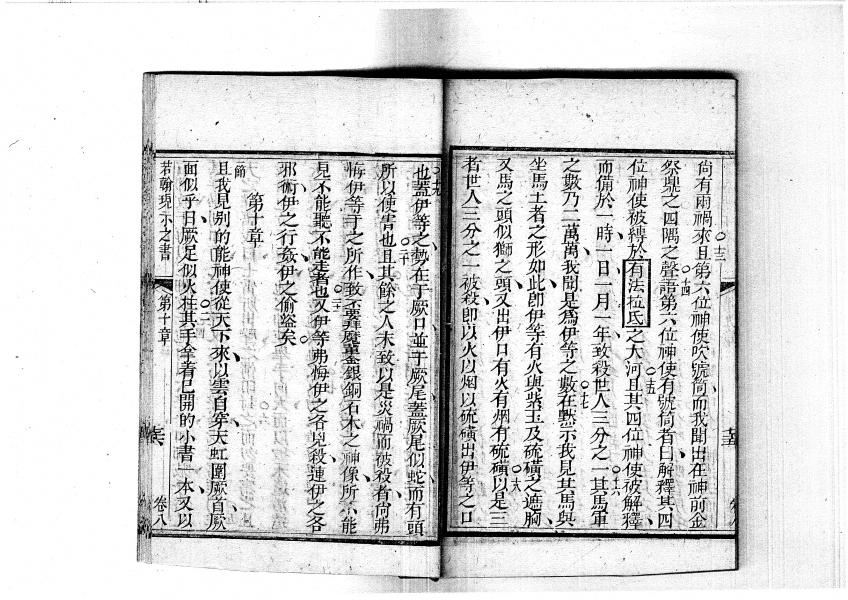 尙有兩禍來且第六位神使吹號筒而我聞出在神前金
○十三
祭鼎之四隅之聲語第六位神使有號筒者曰解釋其四
○十四
位神使被縛於有法拉氐之大河且其四位神使被解釋
○十五
而備於一時一日一月一年致殺世人三分之一其馬軍
○十六
之數乃二萬萬我聞是爲伊等之數在黙示我見其馬與
○十七
坐馬土者之形如此卽伊等有火與紫玉及硫磺之遮胸
又馬之頭似獅之頭又出伊口有火有烟有硫磺以是三
○十八
者世人三分之一被殺卽以火以烟以硫磺出伊等之口
○十九
也蓋伊等之勢在于厥口並于厥尾蓋厥尾似蛇而有頭
所以使害也且其餘之人未致以是災禍而被殺者尙弗
○二十
悔伊等手之所作致不要拜魔葷金銀銅石木之神像所不能
見不能聽不能走者也又伊等弗悔伊之各兇殺連伊之各
○二一
邪術伊之行姦伊之偷盜矣
第十章
一節
且我見别的能神使從天下來以雲自穿天虹圍厥首厥
面似乎日厥足似火柱其手拿着已開的小書一本又以
○二
若翰現示之書
第十章
卷八